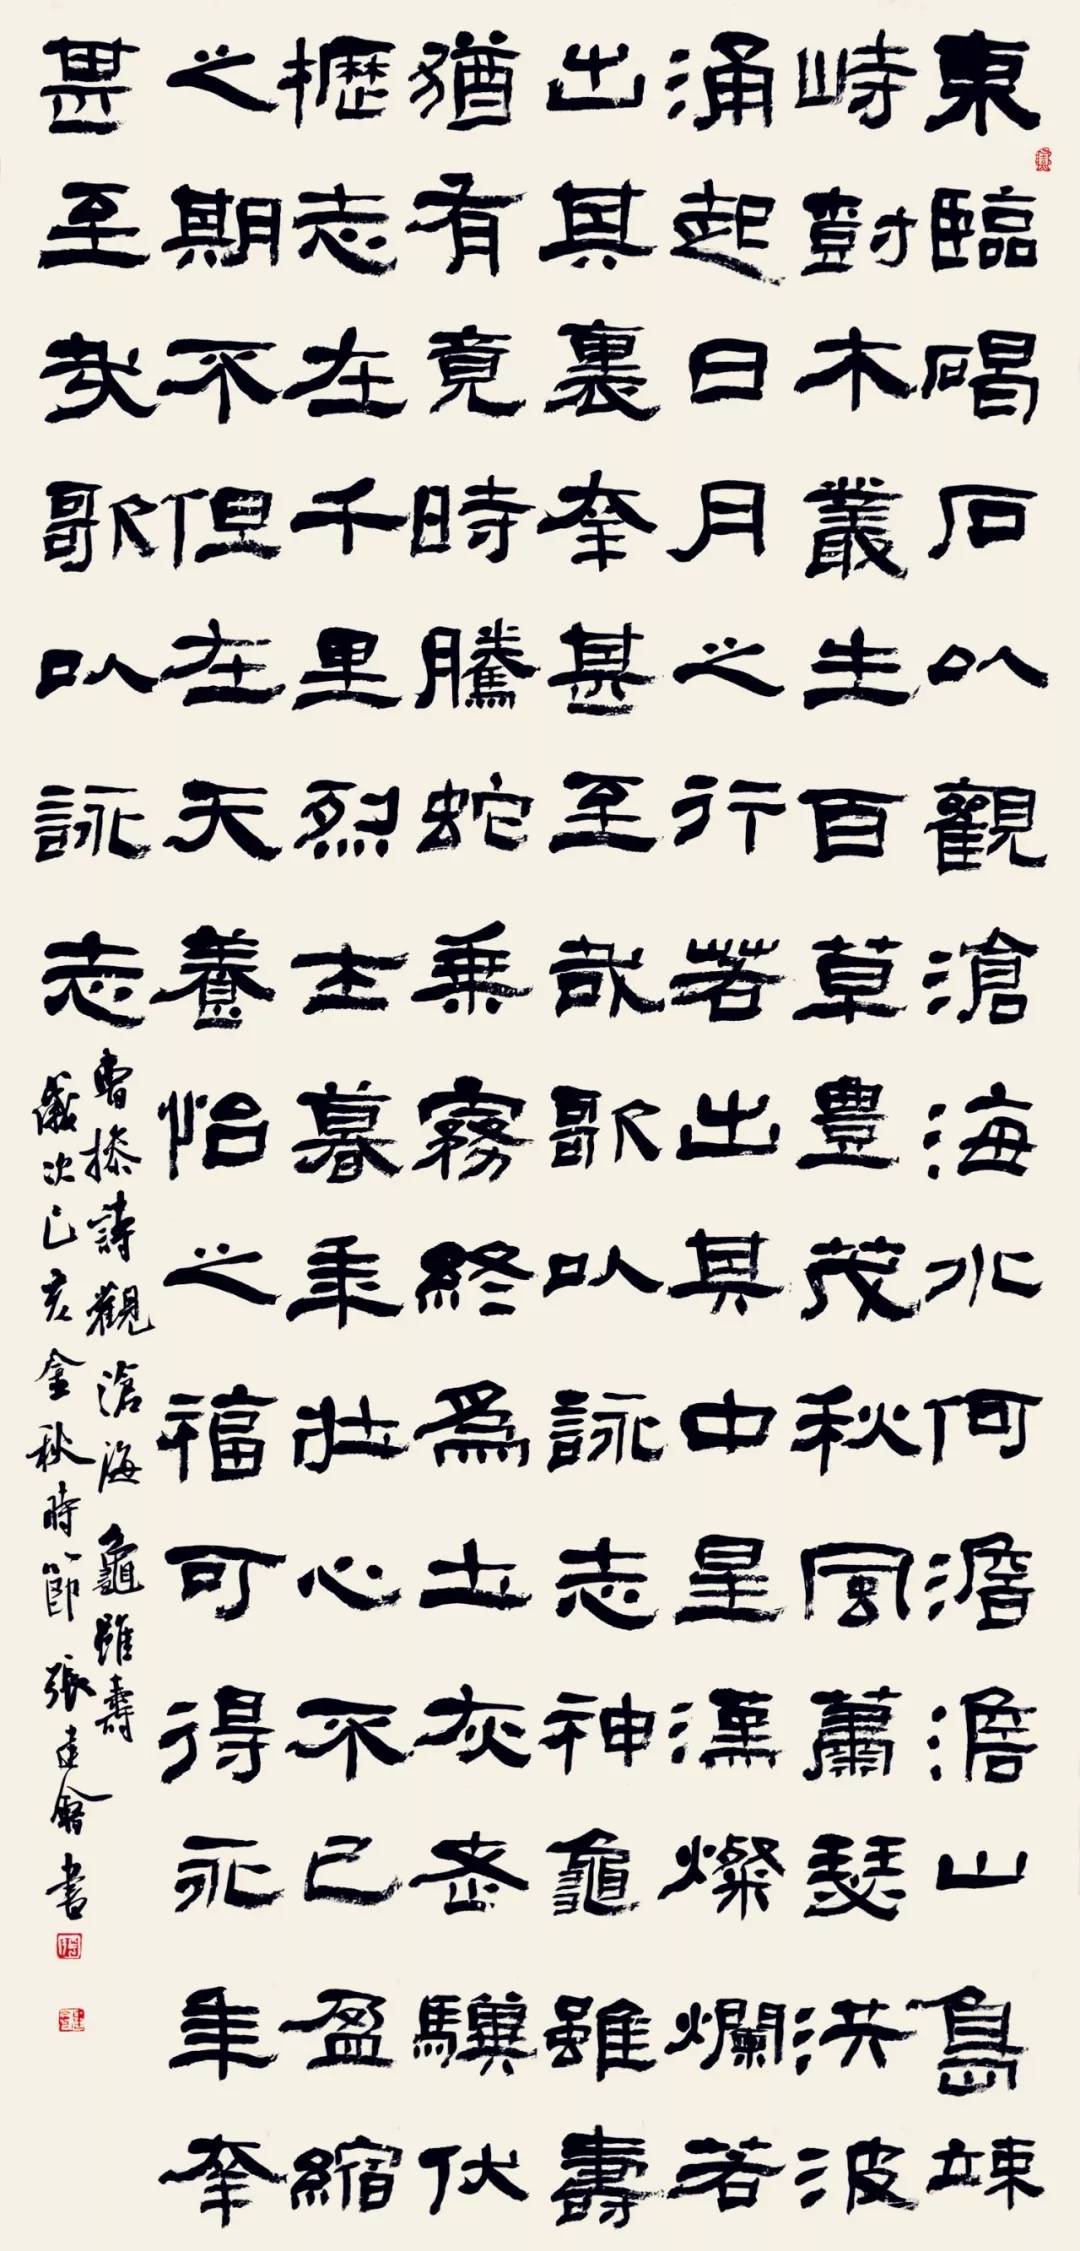 東臨碣石以觀滄海水何澹澹山島竦
峙尌木叢生百草豐茂秋風蕭瑟洪波
涌起日月之行若出其中星漢燦爛若
出其裏幸甚至哉歌以詠志神龜雖壽
猶有竟時騰蛇乘霧終爲土灰老驥伏
櫪志在千里烈士暮年壯心不已盈縮
之期不但在天養怡之福可得永年幸
甚至哉歌以詠志
曹操詩觀滄海 龜雖壽
歲次己亥金秋時節張建會書